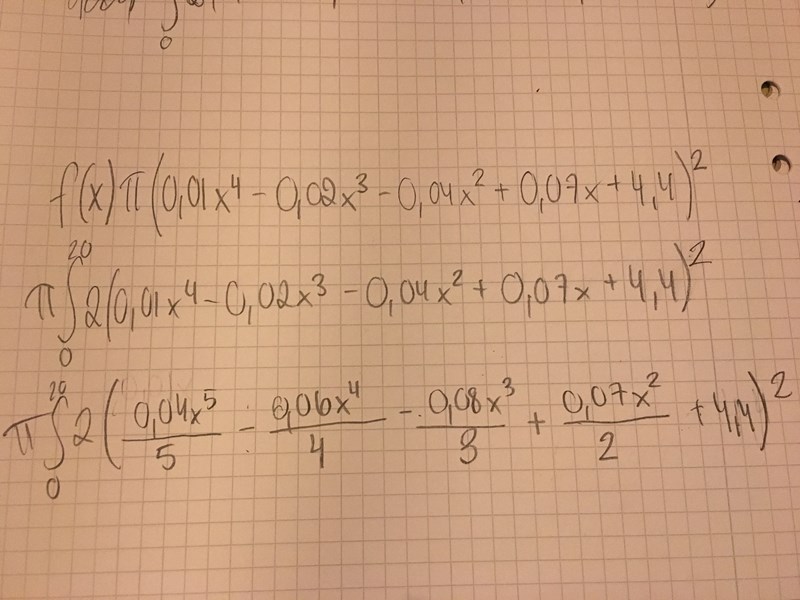 0
f(x) π(0,01x⁴ - 0,02x³ - 0,04x² + 0,07x + 4,4)²
π∫₀²⁰ 2(0,01x⁴ - 0,02x³ - 0,04x² + 0,07x + 4,4)²
π∫₀²⁰ 2(0,04x⁵/5 - 0,06x⁴/4 - 0,08x³/3 + 0,07x²/2 + 4,4)²